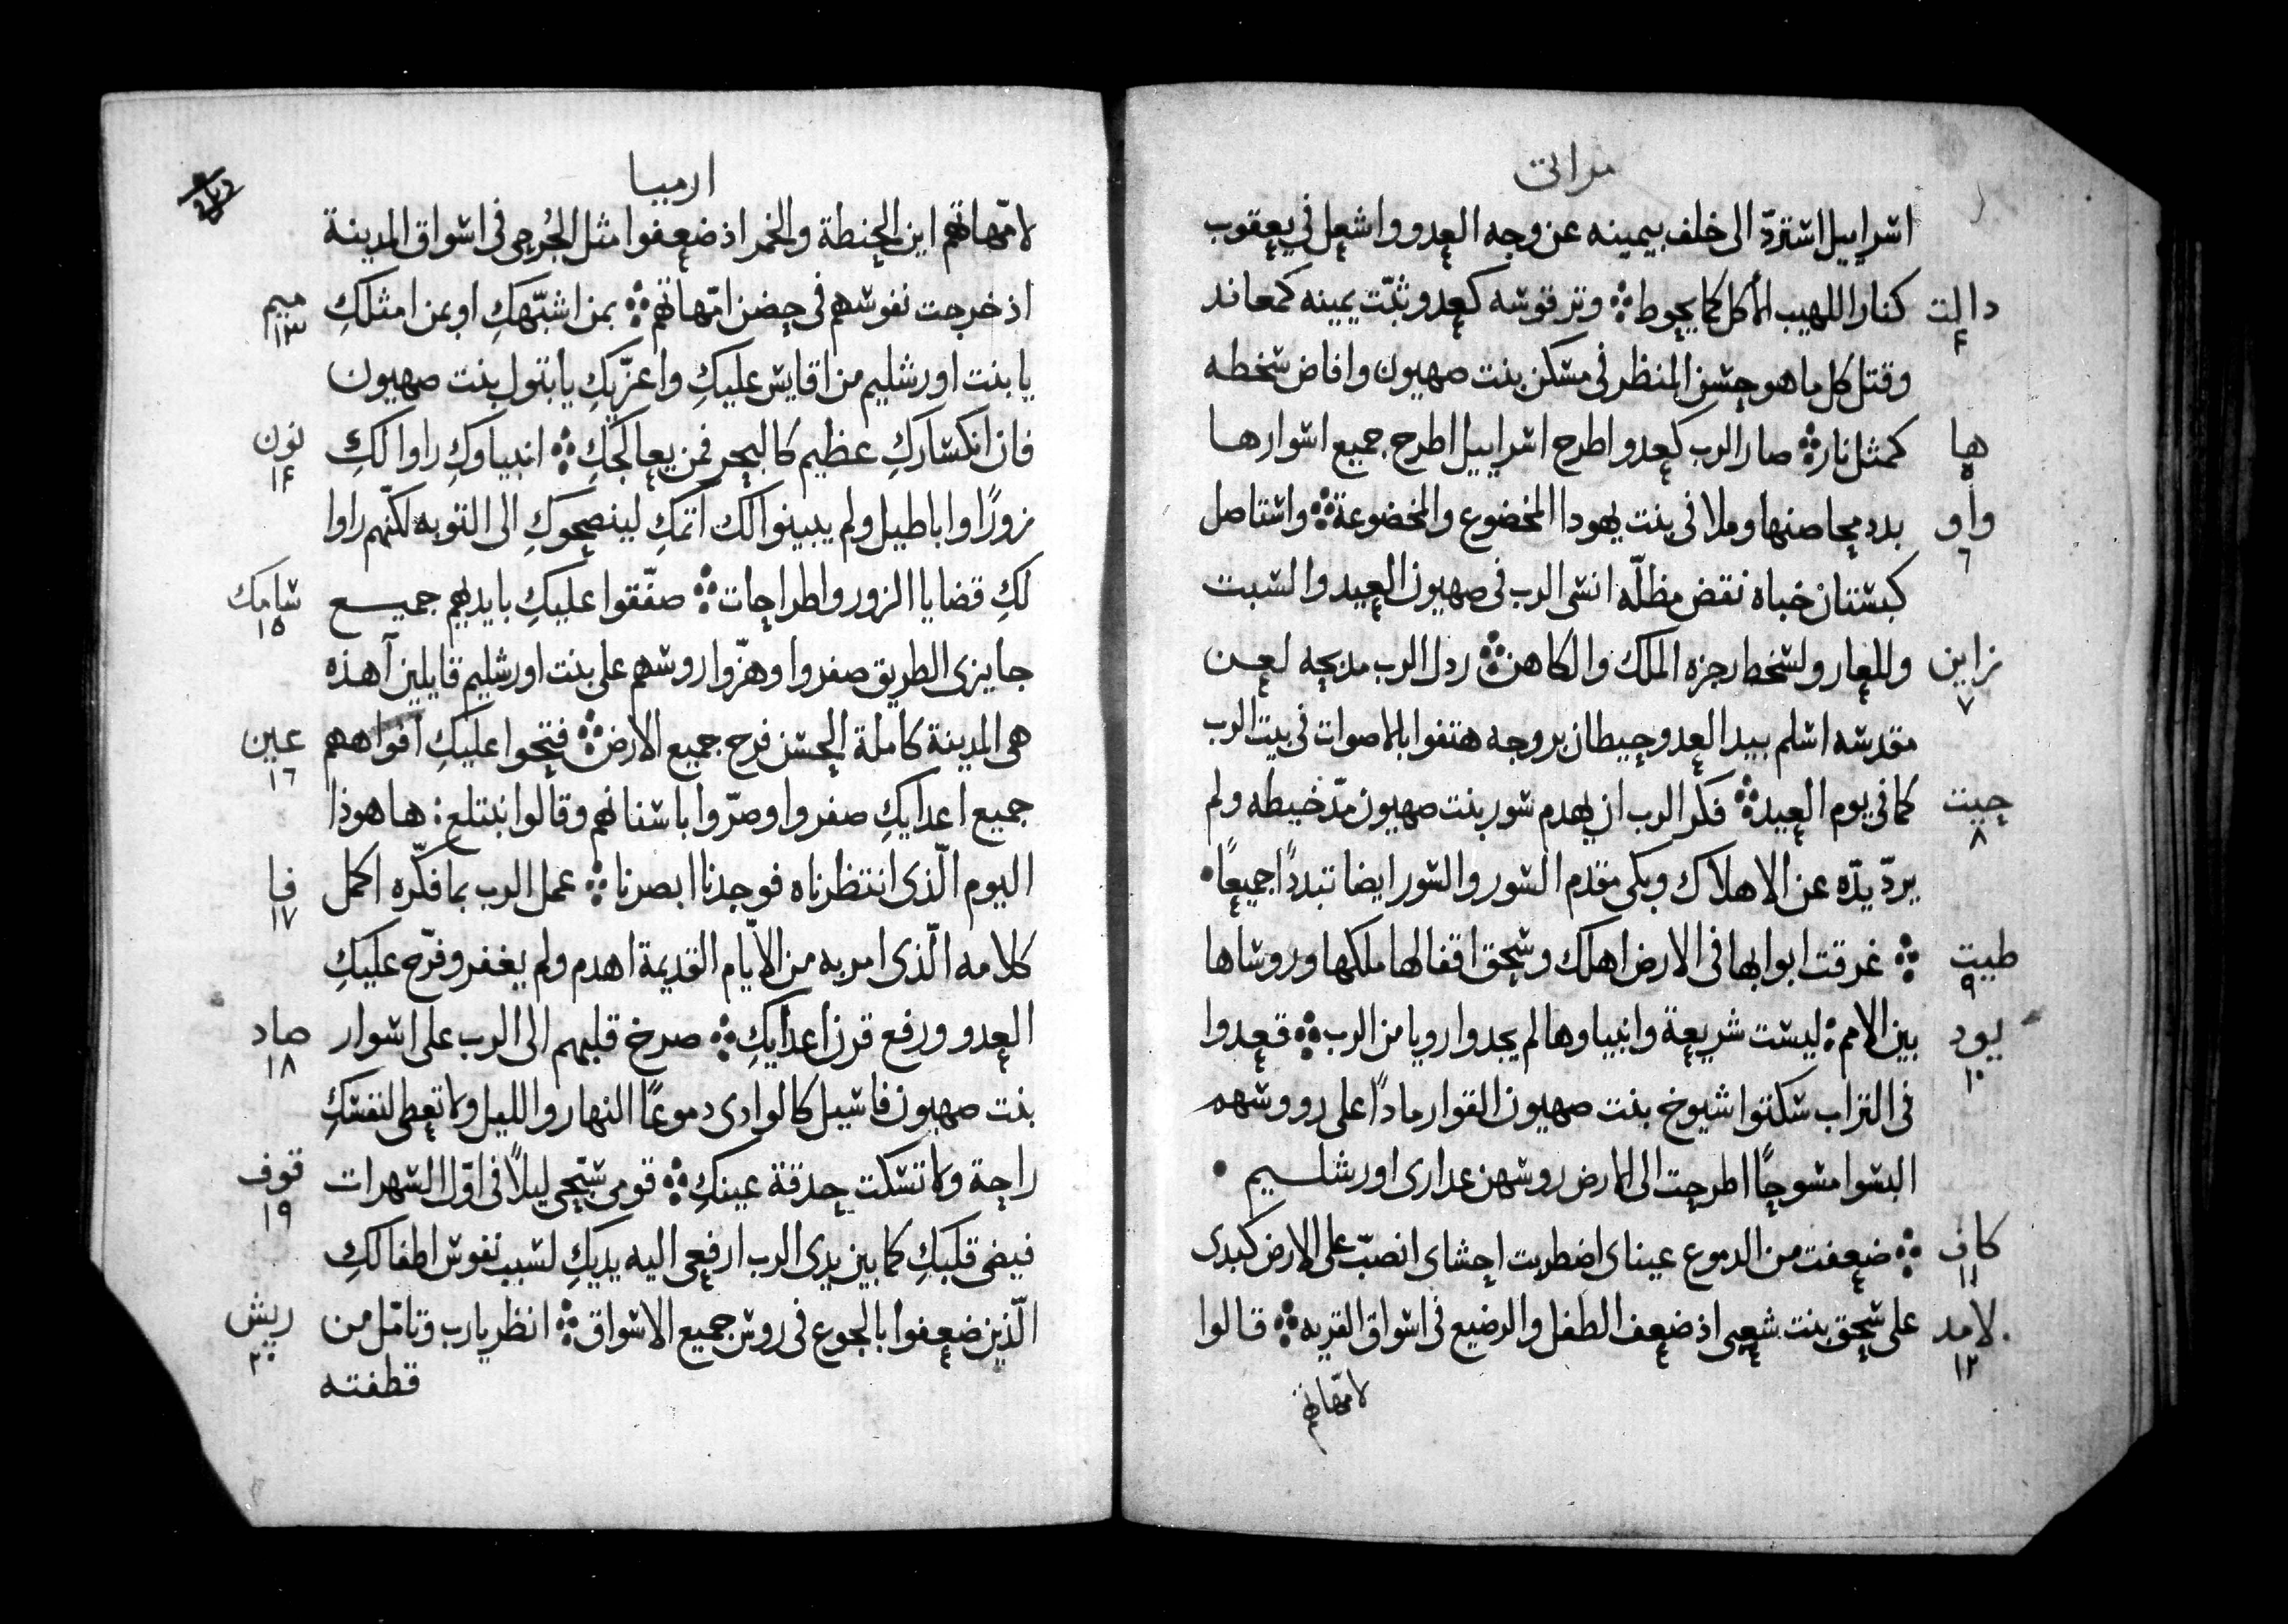 مراثى
اسراييل استردّ الى خلف بيمينه عن وجه العدو واشعل فى يعقوب
دالت كنار اللهيب الأكل كما يحوط ⁘ وتر قوسه كعدو ثبّت يمينه كمعاند
٤
وقتل كل ما هو حسن المنظر فى مسكن بنت صهيون وافاض سخطه
ها كمثل نار ⁘ صار الرب كعدو اطرح اسراييل اطرح جميع اسوارها
٥
واو بدد محاصنها وملا فى بنت يهودا المخضوع والمخضوعة ⁘ واستاصل
٦
كبستان خباه نقض مظلّه انسى الرب فى صهيون العيد والسبت
زاين وللعار ولسخط رجزه الملك والكاهن ⁘ ردل الرب مدبحه لعن
٧
مقدسه اسلم بيد العدو حيطان بروجه هتفوا بالاصوات فى بيت الرب
حيت كما فى يوم العيد ⁘ فكر الرب ان يهدم سور بنت صهيون مدّ خيطه ولم
٨
يردّ يدّه عن الاهلاك وبكى مقدم السور والسور ايضا تبدداً جميعاً •
طيت ⁘ غرقت ابوابها فى الارض اهلك وسحق اقفالها ملكها وروساها
٩
يود بين الامم : ليست شريعة وانبياوها لم يجدوا رويا من الرب ⁘ قعدوا
١٠
فى التراب سكتوا شيوخ بنت صهيون القوا رماداً على رووسهم
البسوا مسوحاً اطرحت الى الارض روسهن عدارى اورشليم •
كاف ⁘ ضعفت من الدموع عيناى اضطربت احشاى انصبّ على الارض كبدى
١١
لامد على سحق بنت شعبى اذ ضعف الطفل والرضيع فى اسواق القريه ⁘ قالوا
١٢
لامّهاتهم
ارميا
لامّهاتهم اين الحنطة والخمر اذ ضعفوا مثل الجُرحى فى اسواق المدينة
اذ خرجت نفوسهم فى حضن امّهاتهم ⁘ بمن اشبّهكِ او بمن امثلكِ ميم
١٣
يا بنت اورشليم من اقايس عليكِ واعزّيكِ يا بتول بنت صهيون
فان انكساركِ عظيم كالبحر فمن يعالجكِ ⁘ انبياوكِ راوا لكِ نون
١٤
زوراً واباطيل ولم يبينوا لك اثمكِ لينصحوكِ الى التوبه لكنّهم راوا
لكِ قضايا الزور واطراحات ⁘ صفّقوا عليكِ بايديهم جميع سامك
١٥
جايزى الطريق صفروا وهزّوا روسهم على بنت اورشليم قايلين آهذه
هى المدينة كاملة الحسن فرح جميع الارض ⁘ فتحوا عليكِ افواههم عين
١٦
جميع اعدايكِ صفروا وصرّوا باسنانهم وقالوا نبتلع : ها هوذا
اليوم الّذى انتظرناه فوجدنا ابصرنا ⁘ عمل الرب بما فكّره اكمل فا
١٧
كلامه الّذى امر به من الايّام القديمة اهدم ولم يغفر وفرّح عليكِ
العدو ورفع قرن اعدايكِ ⁘ صرخ قلبهم الى الرب على اسوار صاد
١٨
بنت صهيون فاسيل كالوادى دموعاً النهار والليل ولا تعطى لنفسكِ
راحة ولا تسكت حدقة عينكِ ⁘ قومى سبّحى ليلاً فى اوّل السهرات قوف
١٩
فيضى قلبكِ كما بين يدى الرب ارفعى اليه يديكِ لسبب نفوس اطفالكِ
الّذين ضعفوا بالجوع فى روس جميع الاسواق ⁘ انظر يا رب وتامّل من ريش
٢٠
قطفته